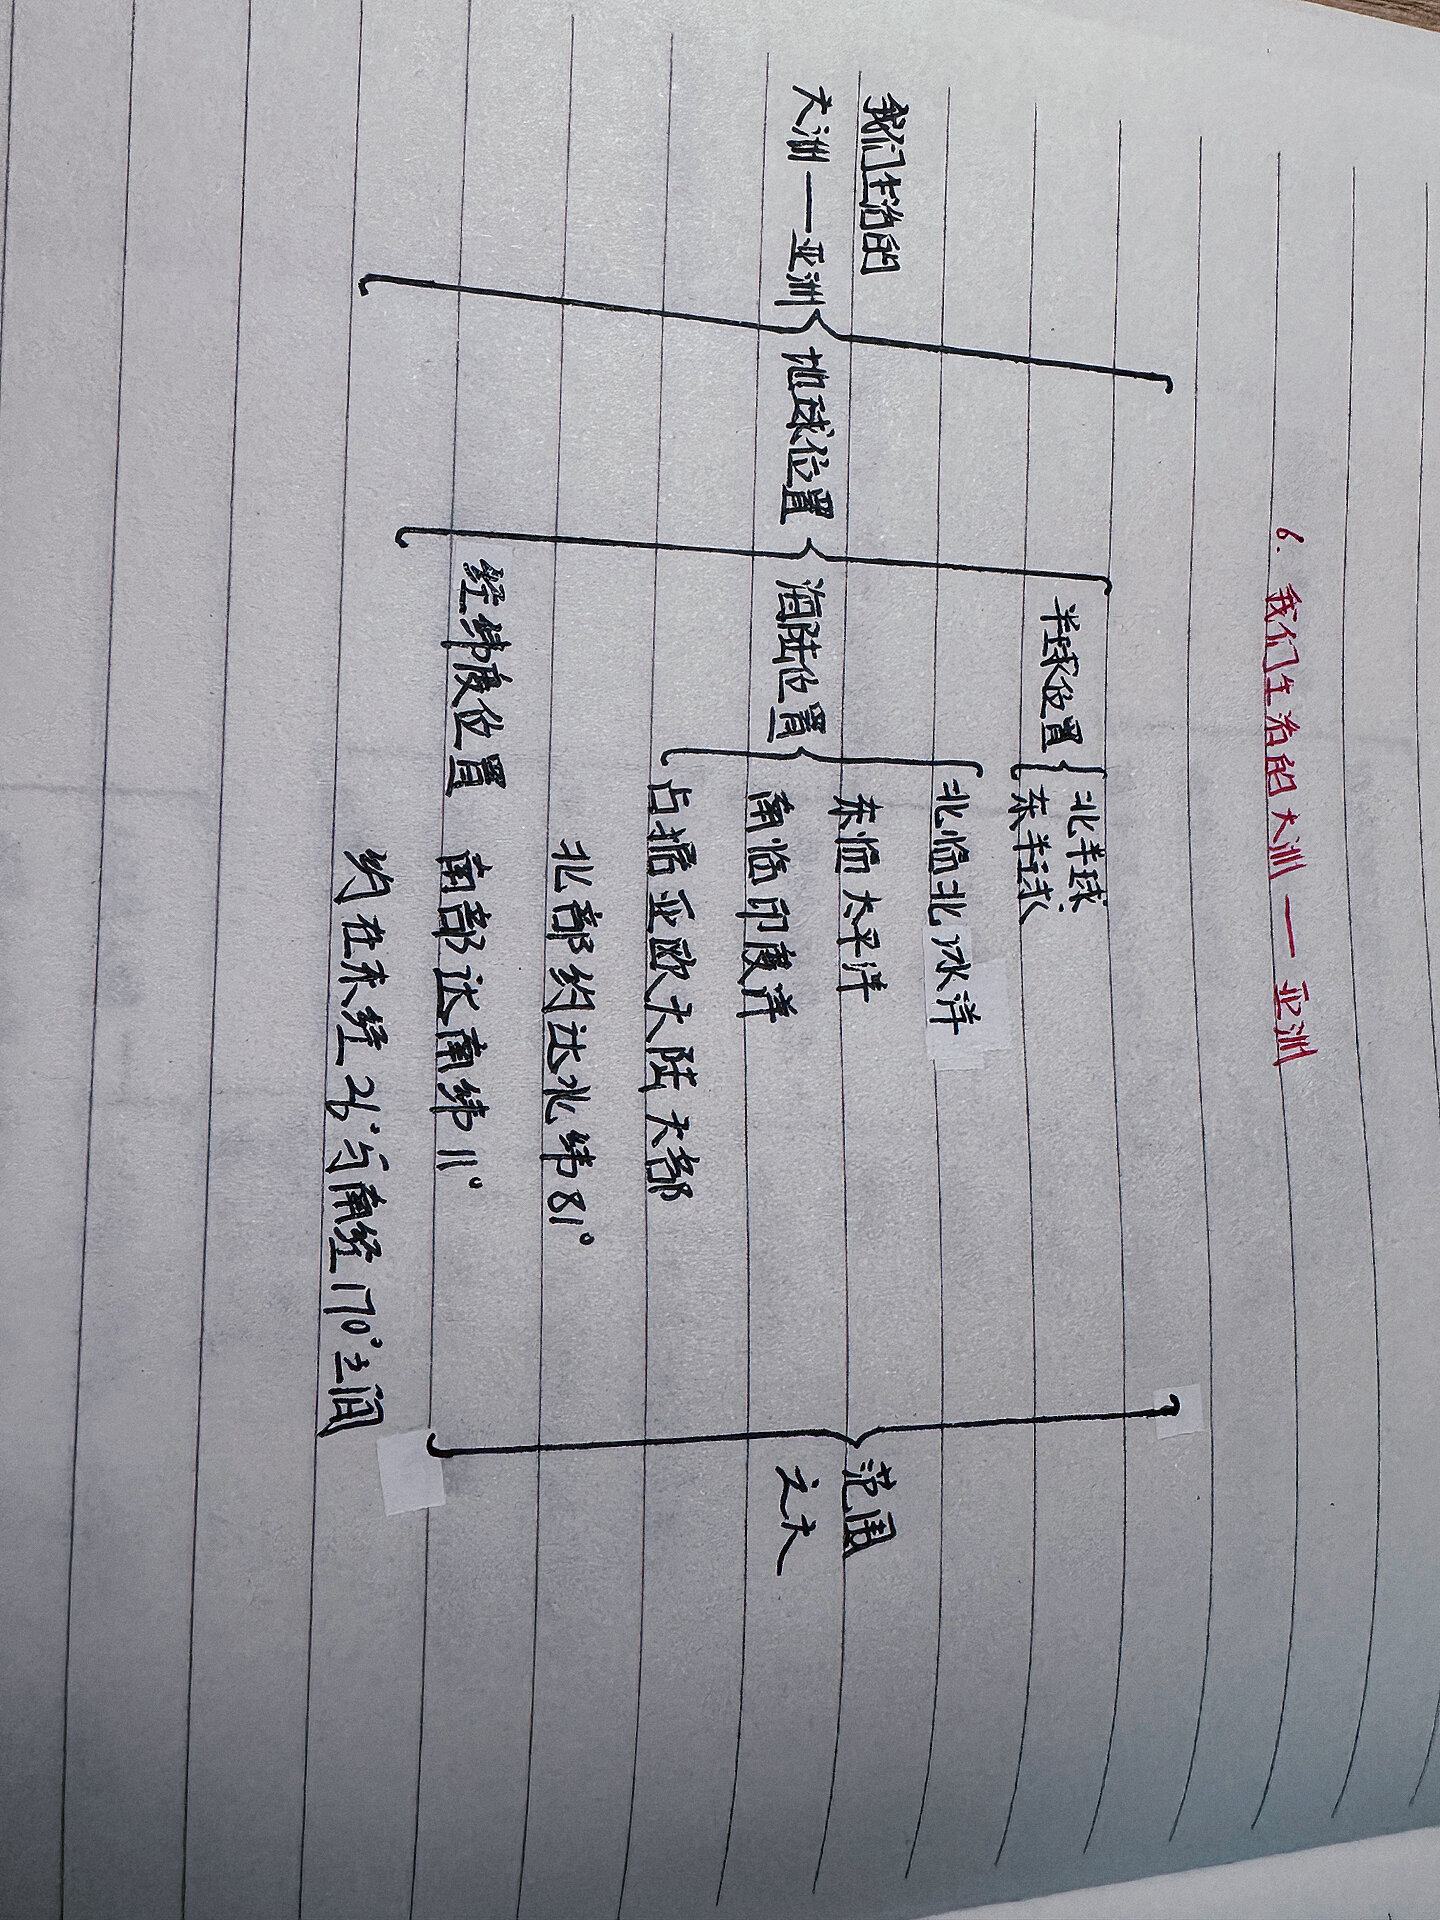 6. 我们生活的大洲 — 亚洲
我们生活的
大洲 — 亚洲
地球位置
半球位置
北半球
东半球
海陆位置
北临北冰洋
东临太平洋
南临印度洋
占据亚欧大陆大部
经纬度位置
北部约达北纬81°
南部达南纬11°
约在东经26°与南经170°之间
范围
之大